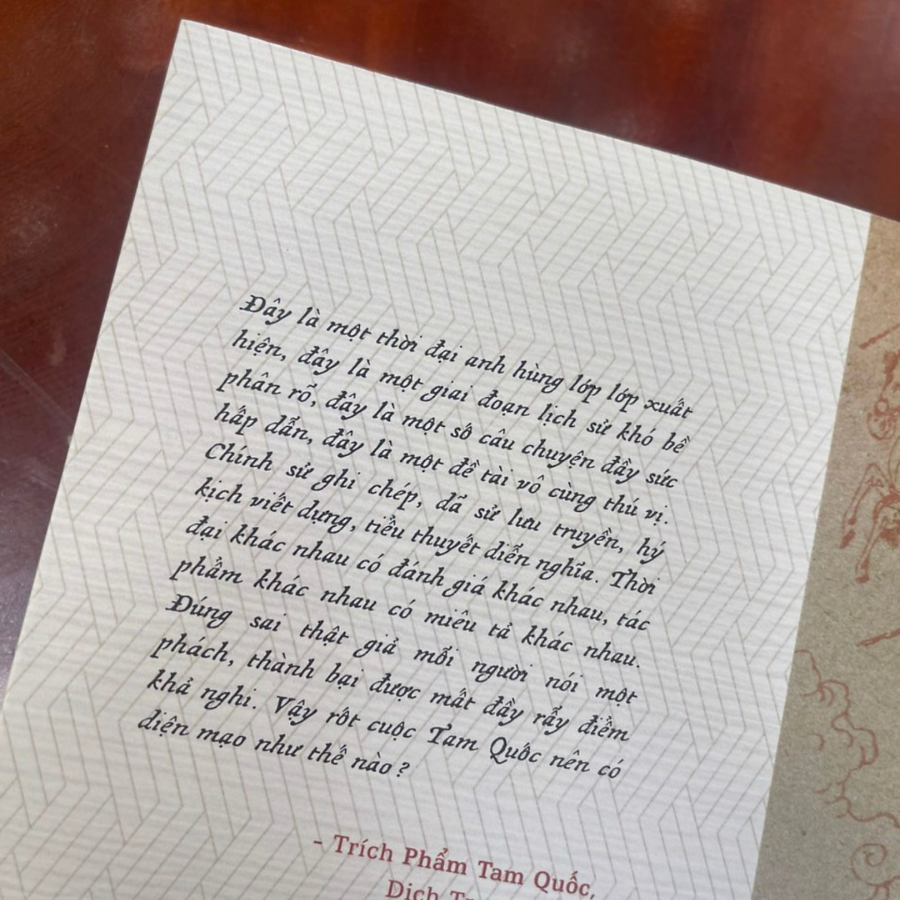 Đây là một thời đại anh hùng lớp lớp xuất
hiện, đây là một giai đoạn lịch sử khó bề
phân rõ, đây là một số câu chuyện đầy sức
hấp dẫn, đây là một đề tài vô cùng thú vị.
Chính sử ghi chép, dã sử lưu truyền, hý
kịch viết dựng, tiểu thuyết diễn nghĩa. Thời
đại khác nhau có đánh giá khác nhau, tác
phẩm khác nhau có miêu tả khác nhau.
Đúng sai thật giả mỗi người nói một
phách, thành bại được mất đầy rẫy điểm
khả nghi. Vậy rốt cuộc Tam Quốc nên có
diện mạo như thế nào?
- Trích Phẩm Tam Quốc,
Dịch